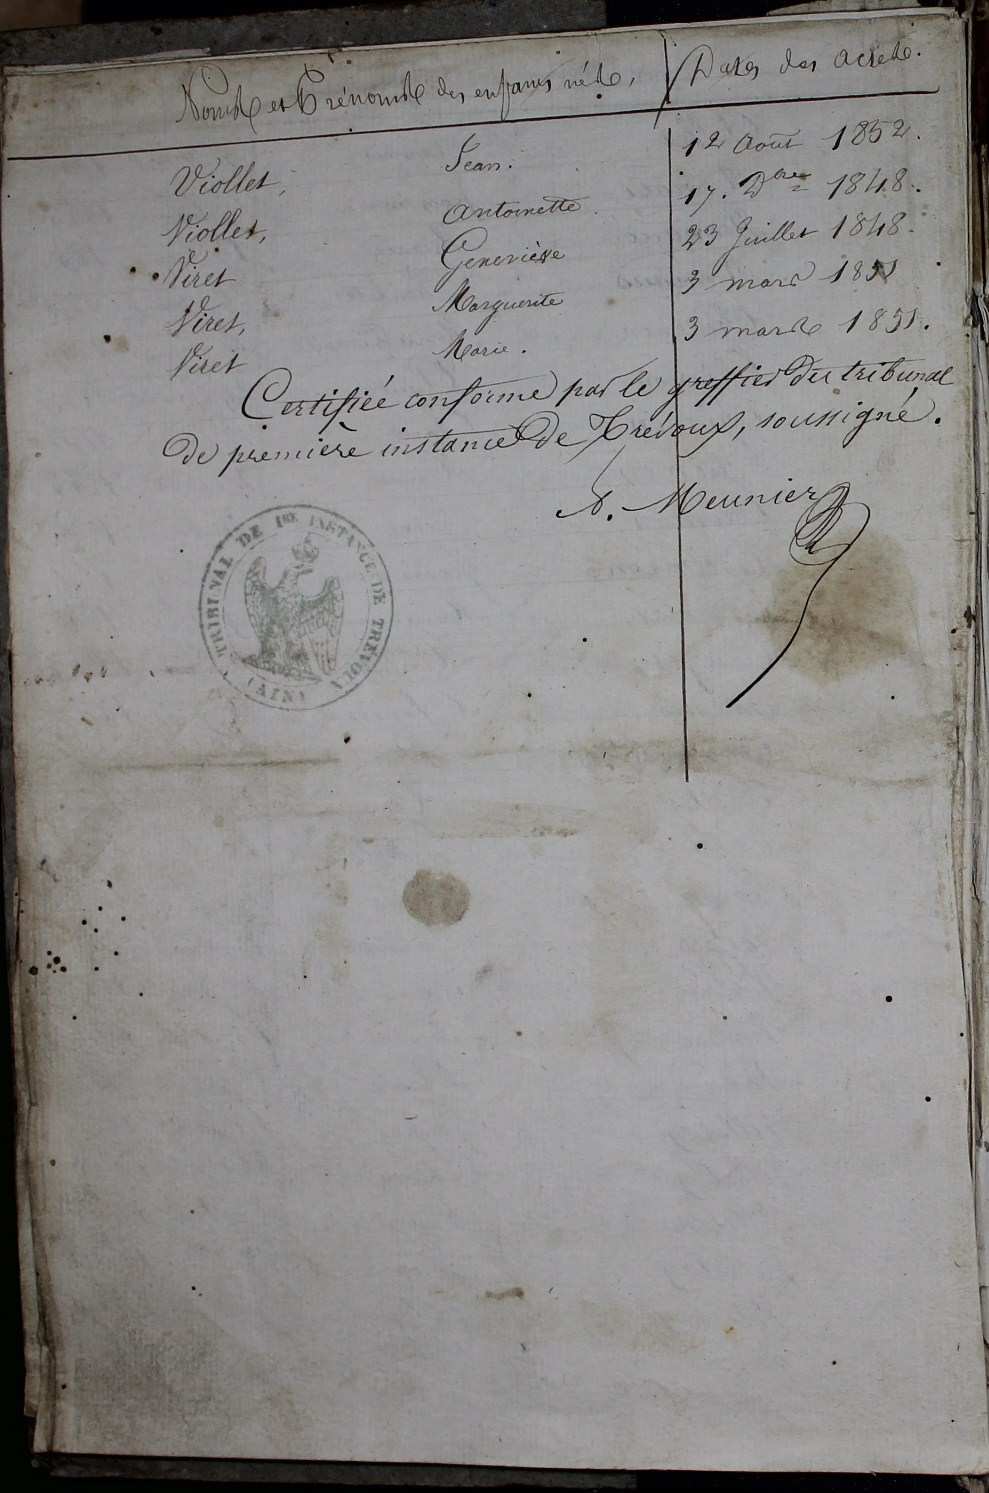 Noms et Prénoms des enfans nés, Dates des actes.
Viollet, Jean. 12 Août 1852.
Viollet, Antoinette. 17. Dbre 1848.
Viret Geneviève 23 Juillet 1848.
Viret, Marguerite 3 mars 1851
Viret Marie. 3 mars 1851.
Certifiée conforme par le greffier du tribunal
de première instance de Trévoux, soussigné.
A. Meunier
TRIBUNAL DE 1RE INSTANCE DE TREVOUX
(AIN)